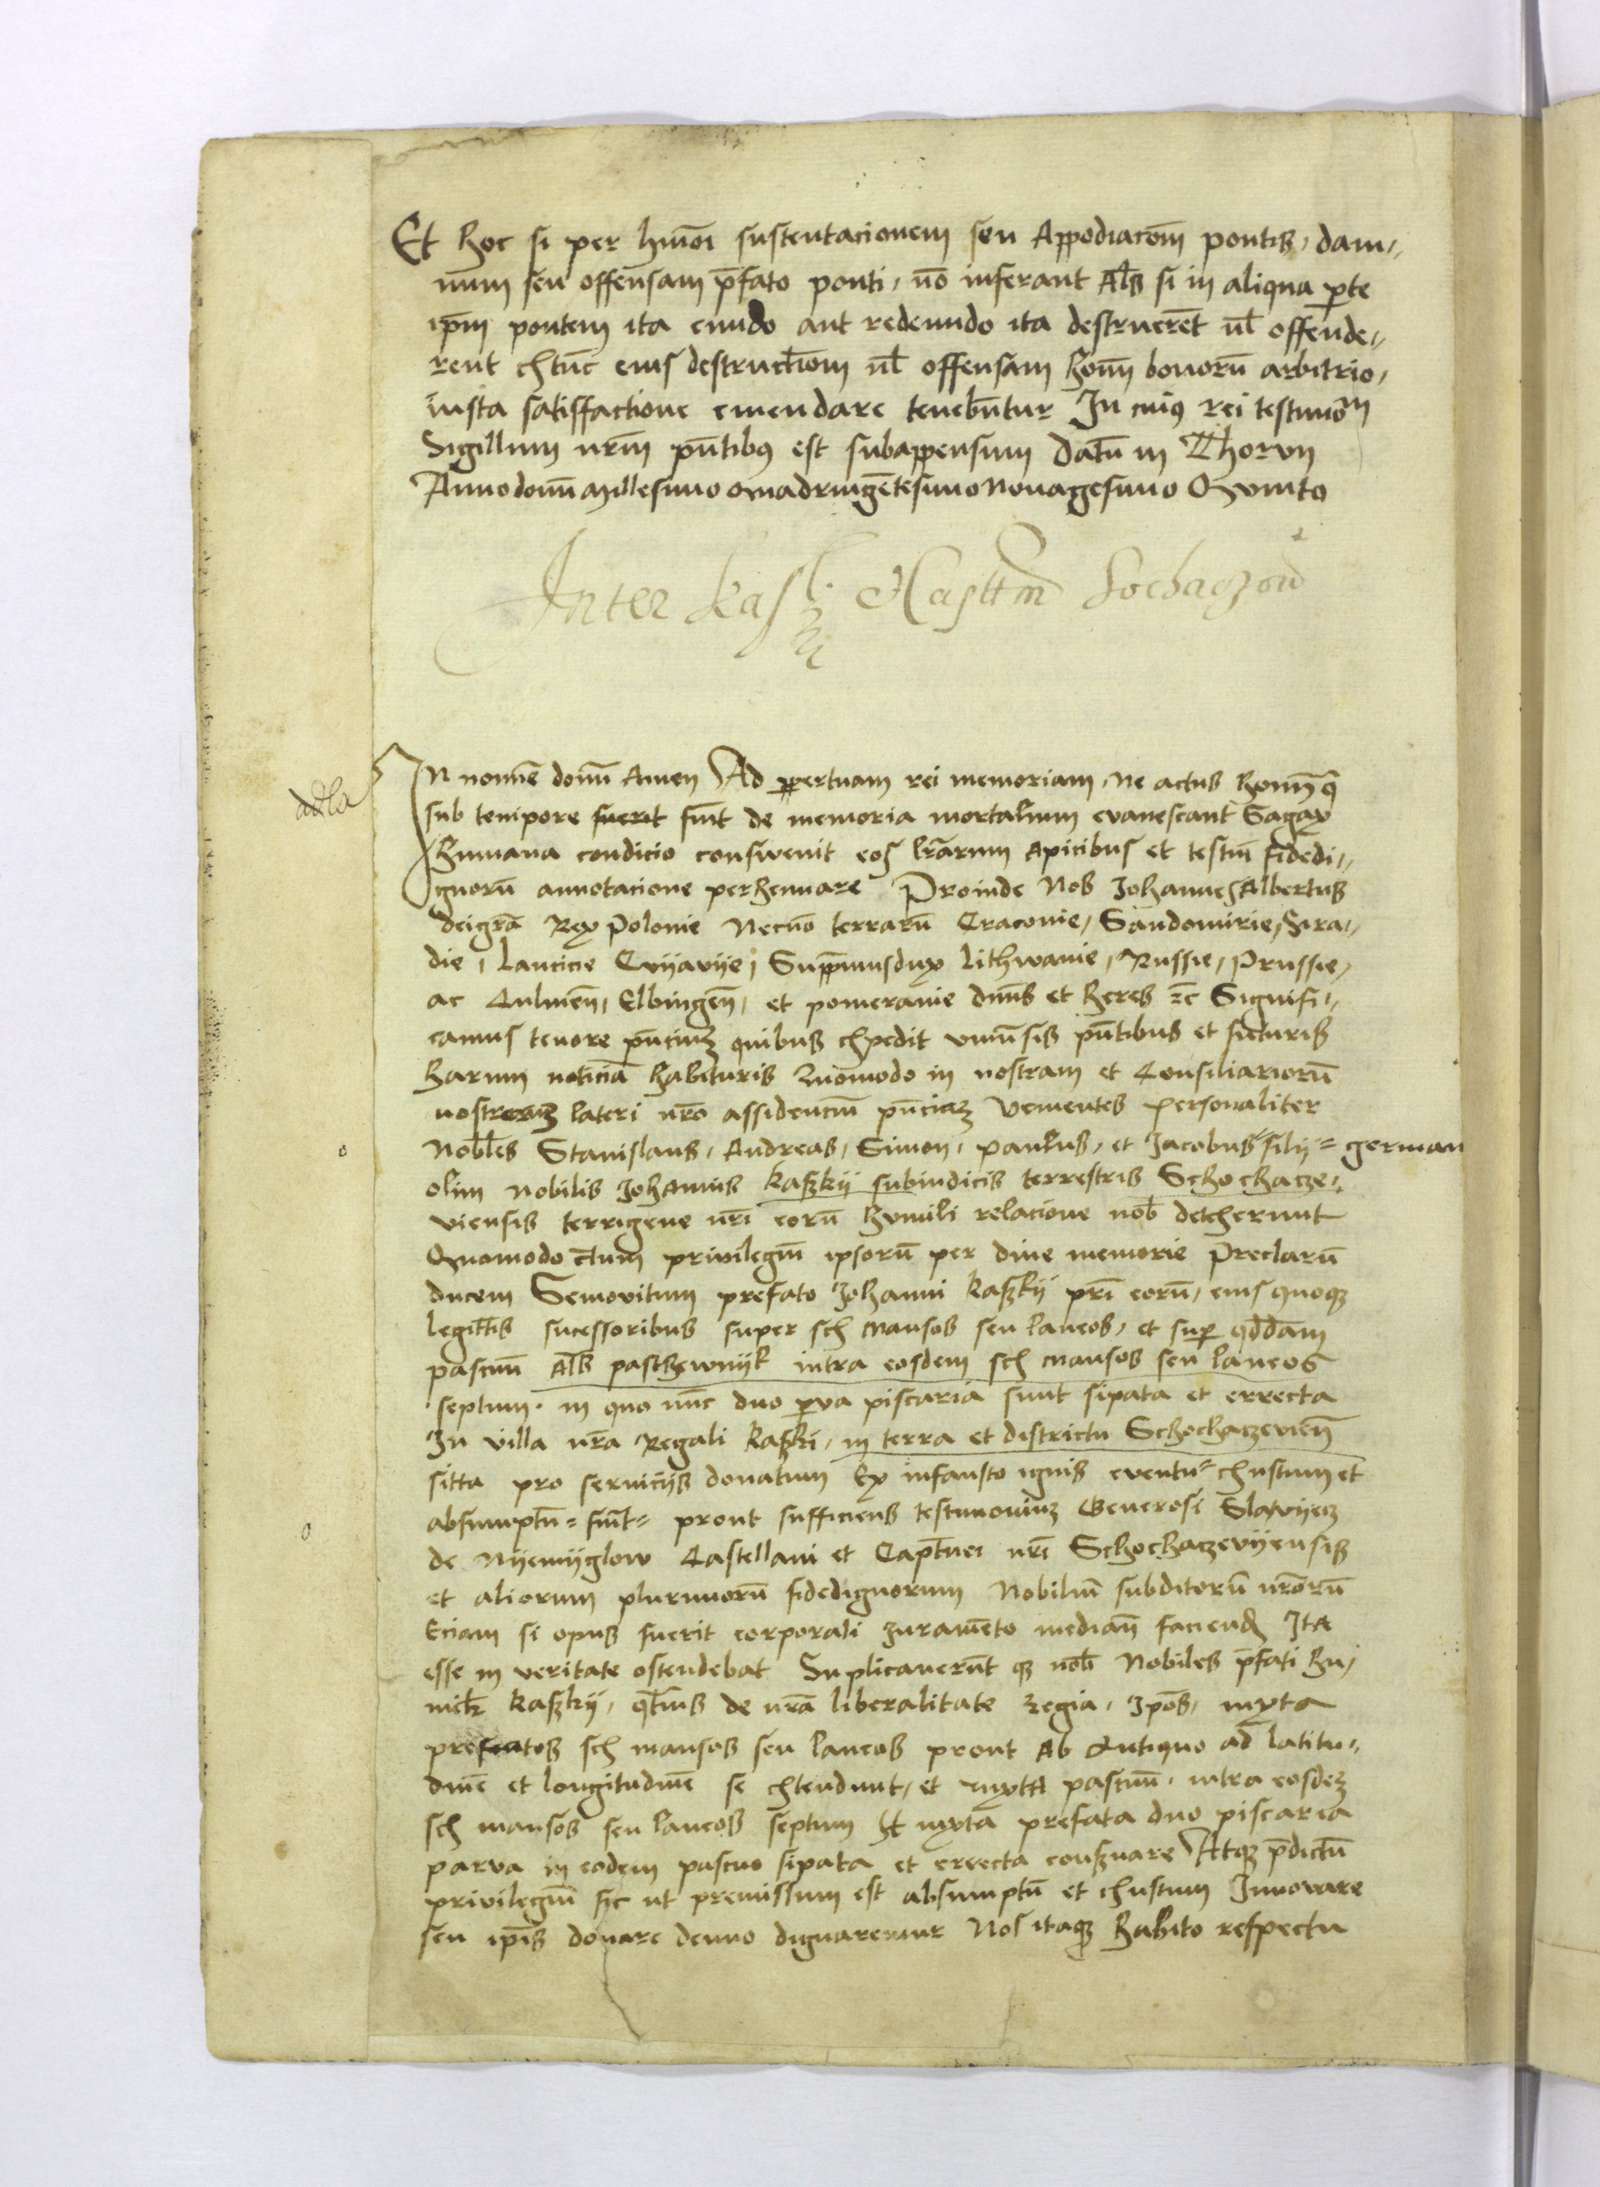 Et hoc si per hmõi sustentacionem seu Appodiacõm pontis, dam-
num seu offensam p̃fato ponti, nõ inferant Als̃ si in aliqua p̱te
ip̃m pontem ita eundo aut redeundo ita destruerẽt ul̃ offende-
rent extũc eius destructiõm ul̃ offensam hom̃ bonorũ arbitrio,
iusta satisfactione emendare teneb̃ntur In cuiq rei testimoᵐ
Sigillum nr̃m pñtibq est subappensum Datũ in Thorun
Anno domĩ Millesimo Quadringẽtesimo Nonagesimo Quinto
Inter Kasl. Castlm Sochaczow
adla
IN nomĩe domĩ Amen Ad ꝑpetuam rei memoriam, Ne actus homĩ q̃
sub tempore fuerit fiũt de memoria mortalium evanescant Sagax
humana condicio conswevit eos lr̃arum Apicibus et testiũ fidedi-
gnorũ annotacione perhennare Proinde Nos Johannes Albertus
dei gr̃a Rex Polonie Necnõ terrarũ Cracovie, Sandomirie, Sira-
die, Lancicie Cuyavye, Supp̃musdux Lithwanie, Russie, Prussie,
ac Culmeñ, Elbingeñ, et pomeranie dñus et heres ꝛc̃ Signifi-
camus tenore pñcium quibus expedit uniṽsis pñtibus et futuris
harum noticiã habituris Quomodo in nostram et Consiliariorũ
nostrorum lateri nr̃o assidenciũ pñciam venientes personaliter
Nobl̃es Stanislaus, Andreas, Simon, Paulus, et Jacobus filij german
olim nobilis Johannis Kaszkij subiudicis terrestris Schochacze-
viensis terrigene nr̃i eorũ humili relacione nob̃ detexerunt
Quomodo privilegiũ ipsorũ per dive memorie Preclarũ
ducem Semovitum prefato Johanni Kaszkij pr̃i eorũ, eius quoq
legittĩs sucessoribus super sex mansos seu laneos, et sup̱ qd̃dam
pascuũ Als̃ pasthewnyk intra eosdem sex mansos seu laneos
septum, in quo nũc duo p̱va piscaria sunt sipata et errecta
In villa nr̃a Regali Kaszki, in terra et districtu Schochaczevieñ
sitta pro serviciis donatum Ex infausto ignis eventu exustum et
absumptũ fiut prout sufficiens testimonium Generosi Slawyecz
de Nyemyglow Castellani et Capt̃nei nr̃i Schochaczevyensis
et aliorum plurimorũ fidedignorum Nobiliũ subditorũ nr̃orũ
Eciam si opus fuerit corporali Juramẽto mediañ faciend Ita
esse in veritate ostendebat Suplicaverũt q̃ nob̃ Nobiles p̃fati hu-
milr̃ Kaszkij, qtĩus de nr̃a liberalitate regia, ip̃os, iuxta
prefatos sex mansos seu laneos prout Ab Antiquo ad latitu-
dinẽ et longitudinẽ se extendunt, et iuxta pascuũ, intra eosdem
sex mansos seu laneos septum Et iuxta prefata duo piscaria
parva in eodem pascuo sipata et errecta cons̃vare Atq p̃dictũ
privilegiũ sic ut premissum est absumptũ et exustum Innovare
seu ip̃is donare denuo dignaremur Nos itaq habito respectu